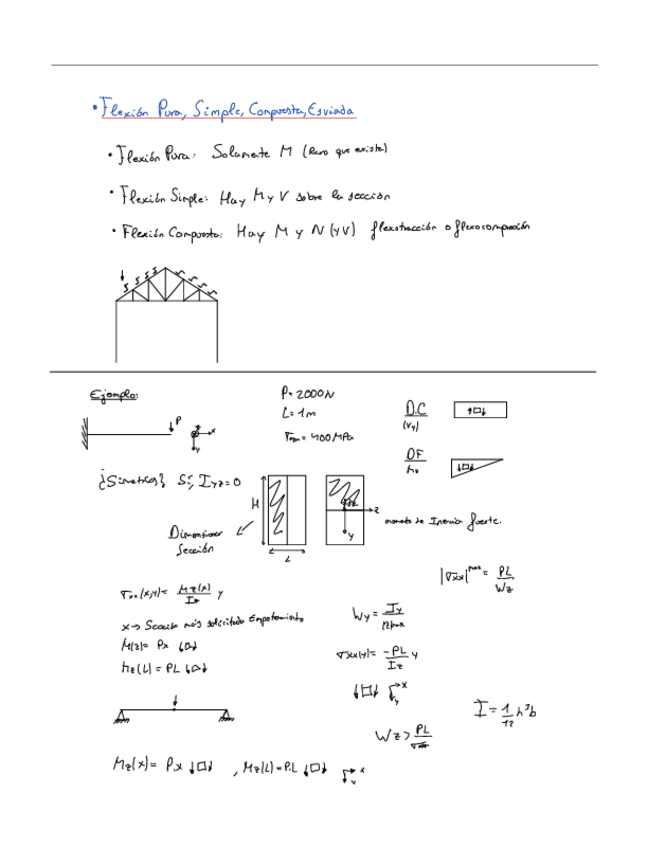 • Flexión Pura, Simple, Compuesta, Esviada
• Flexión Pura: Solamente M (Raro que exista)
• Flexión Simple: Hay M y V sobre la sección
• Flexión Compuesta: Hay M y N (y V) flexotracción o flexocompresión
Ejemplo:
P
x
y
P= 2000N
L= 1m
= 400 MPa
D.C
(Vy)
DF
¿Simetrico? Sí, Iyz=0
H
L
Dimensionar
Sección
z
y
momento de Inercia fuerte.
|σxx|max = PL / Wz
σxx(x,y)= Mz(x) / Iz y
x → Sección más solicitada Empotramiento
M(z)= Px
Mz(L)= PL
Wy = Iy
σxx(y)= -PL / Iz y
x
y
I = 1/12 h³b
Wz > PL
Mz(x)= P.x , Mz(L)=P.L
x
y